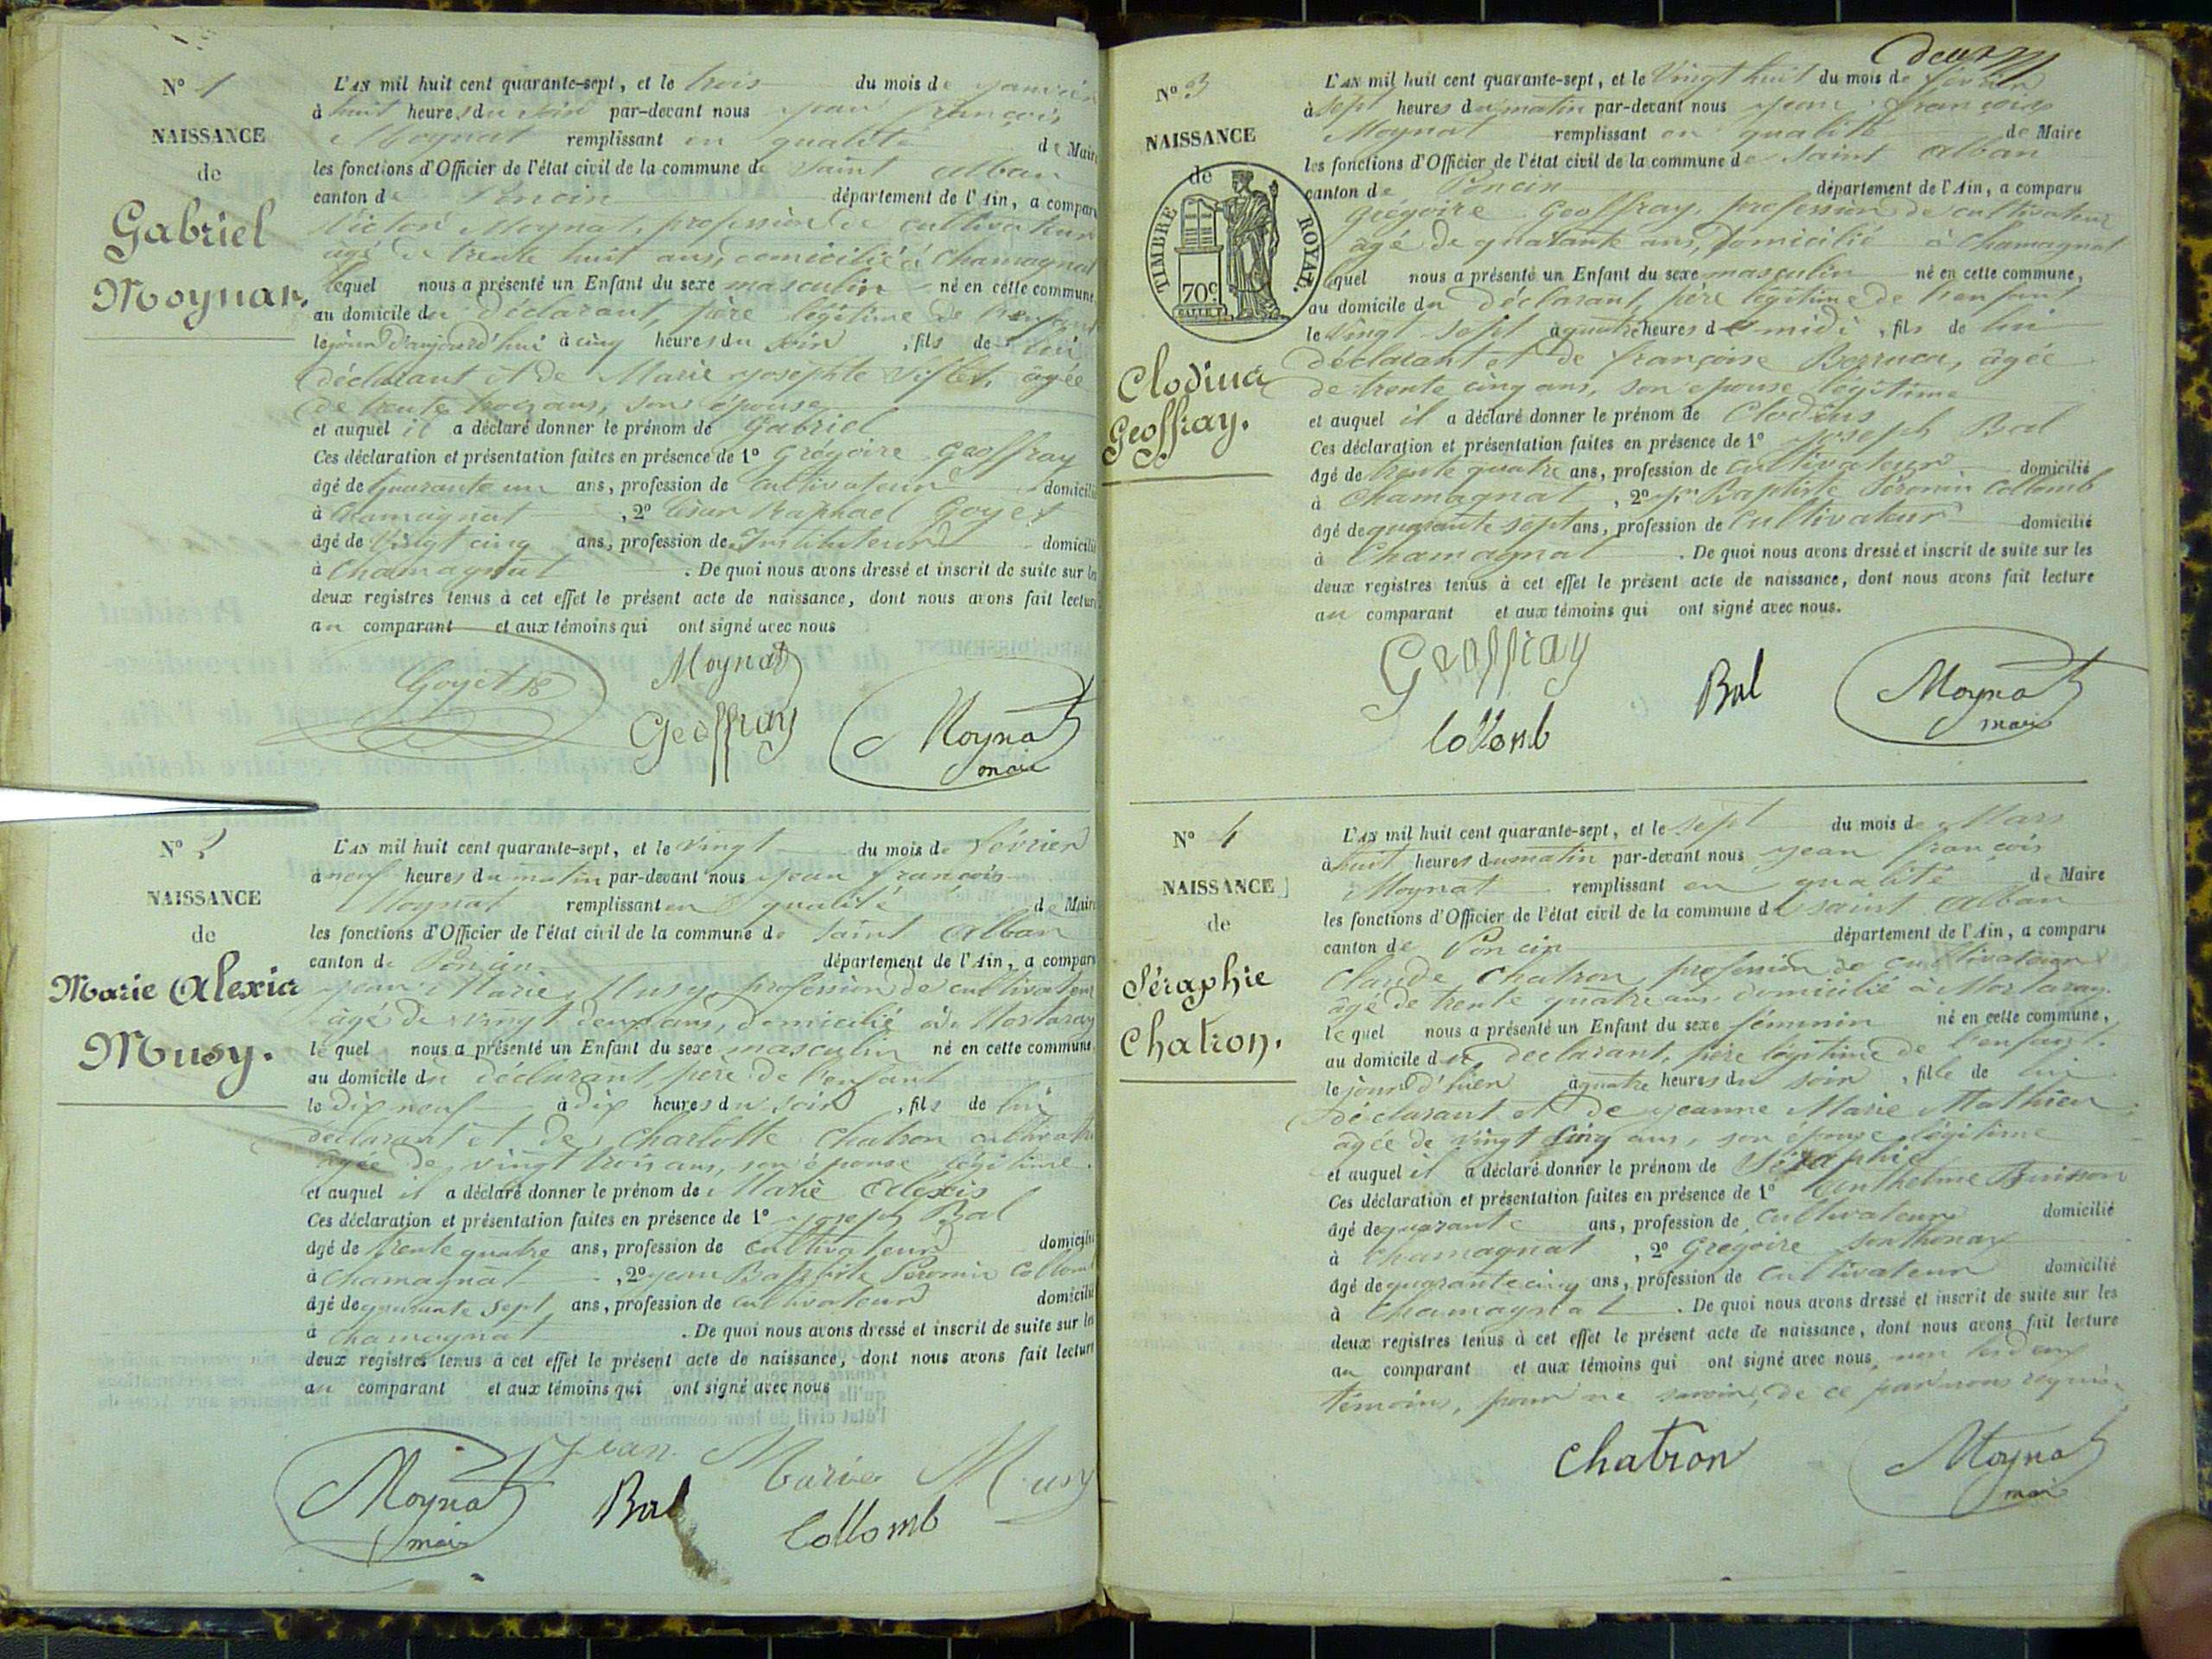 N° 1
NAISSANCE
de
Gabriel
Moynat.
L'AN mil huit cent quarante-sept, et le trois du mois de janvier
à huit heures du soir par-devant nous jean françois
Moynat remplissant en qualité de Maire
les fonctions d'Officier de l'état civil de la commune de saint alban
canton de Poncin département de l'Ain, a comparu
Victor Moynat, profession de cultivateur
âgé de trente huit ans, domicilié à Chamagnat
lequel nous a présenté un Enfant du sexe masculin né en cette commune,
au domicile du déclarant, père légitime de l'enfant
le jour d'aujourd'hui à cinq heures du soir, fils de lui
déclarant et de Marie josephte âgée
de trente trois ans, son épouse
et auquel il a déclaré donner le prénom de Gabriel
Ces déclaration et présentation faites en présence de 1° Grégoire Geoffray
âgé de quarante un ans, profession de cultivateur domicilié
à Chamagnat, 2° César Raphael Goyet
âgé de Vingt cinq ans, profession de Instituteur domicilié
à Chamagnat. De quoi nous avons dressé et inscrit de suite sur les
deux registres tenus à cet effet le présent acte de naissance, dont nous avons fait lecture
au comparant et aux témoins qui ont signé avec nous
Goyet R Moynat
Geoffray Moynat
maire
N° 2
NAISSANCE
de
Marie Alexis
Musy.
L'AN mil huit cent quarante-sept, et le vingt du mois de février
à neuf heures du matin par-devant nous jean françois
Moynat remplissant en qualité de Maire
les fonctions d'Officier de l'état civil de la commune de saint alban
canton de Poncin département de l'Ain, a comparu
jean Marie Musy, profession de cultivateur
âgé de vingt deux ans, domicilié à Mortaray
lequel nous a présenté un Enfant du sexe masculin né en cette commune,
au domicile du déclarant, père de l'enfant
le dix neuf à dix heures du soir, fils de lui
déclarant et de Charlotte Chatron
âgée de vingt trois ans, son épouse légitime.
et auquel il a déclaré donner le prénom de Marie Alexis
Ces déclaration et présentation faites en présence de 1° joseph Bal
âgé de trente quatre ans, profession de cultivateur domicilié
à Chamagnat, 2° jean Baptiste Peronin Collomb
âgé de quarante sept ans, profession de cultivateur domicilié
à Chamagnat. De quoi nous avons dressé et inscrit de suite sur les
deux registres tenus à cet effet le présent acte de naissance, dont nous avons fait lecture
au comparant et aux témoins qui ont signé avec nous
Jean Marie Musy
Moynat Bal Collomb
maire
deux
N° 3
NAISSANCE
de
TIMBRE ROYAL.
70c
Clodius
Geoffray.
L'AN mil huit cent quarante-sept, et le Vingt huit du mois de février
à sept heures du matin par-devant nous jean françois
Moynat remplissant en qualité de Maire
les fonctions d'Officier de l'état civil de la commune de saint alban
canton de Poncin département de l'Ain, a comparu
Grégoire Geoffray, profession de cultivateur
âgé de quarante ans, domicilié à Chamagnat
lequel nous a présenté un Enfant du sexe masculin né en cette commune,
au domicile du déclarant, père légitime de l'enfant
le Vingt sept à quatre heures de midi, fils de lui
déclarant et de françoise âgée
de trente cinq ans, son épouse légitime
et auquel il a déclaré donner le prénom de Clodius
Ces déclaration et présentation faites en présence de 1° joseph Bal
âgé de trente quatre ans, profession de cultivateur domicilié
à Chamagnat, 2° jn Baptiste Peronin Collomb
âgé de quarante sept ans, profession de cultivateur domicilié
à Chamagnat. De quoi nous avons dressé et inscrit de suite sur les
deux registres tenus à cet effet le présent acte de naissance, dont nous avons fait lecture
au comparant et aux témoins qui ont signé avec nous.
Geoffray Bal Moynat
Collomb maire
N° 4
NAISSANCE
de
Séraphie
Chatron.
L'AN mil huit cent quarante-sept, et le sept du mois de Mars
à huit heures du matin par-devant nous jean françois
Moynat remplissant en qualité de Maire
les fonctions d'Officier de l'état civil de la commune de saint alban
canton de Poncin département de l'Ain, a comparu
Claude Chatron, profession de cultivateur
âgé de trente quatre ans, domicilié à Mortaray.
lequel nous a présenté un Enfant du sexe féminin né en cette commune,
au domicile du déclarant, père légitime de l'enfant.
le jour d'hier à quatre heures du soir, fille de lui
déclarant et de jeanne Marie Mathieu
âgée de vingt cinq ans, son épouse légitime
et auquel il a déclaré donner le prénom de Séraphie
Ces déclaration et présentation faites en présence de 1° Anthelme Buisson
âgé de quarante ans, profession de cultivateur domicilié
à Chamagnat, 2° Grégoire Sonthonax
âgé de quarante cinq ans, profession de cultivateur domicilié
à Chamagnat. De quoi nous avons dressé et inscrit de suite sur les
deux registres tenus à cet effet le présent acte de naissance, dont nous avons fait lecture
au comparant et aux témoins qui ont signé avec nous, non les deux
témoins, pour ne savoir, de ce par nous requis.
Chatron Moynat
maire